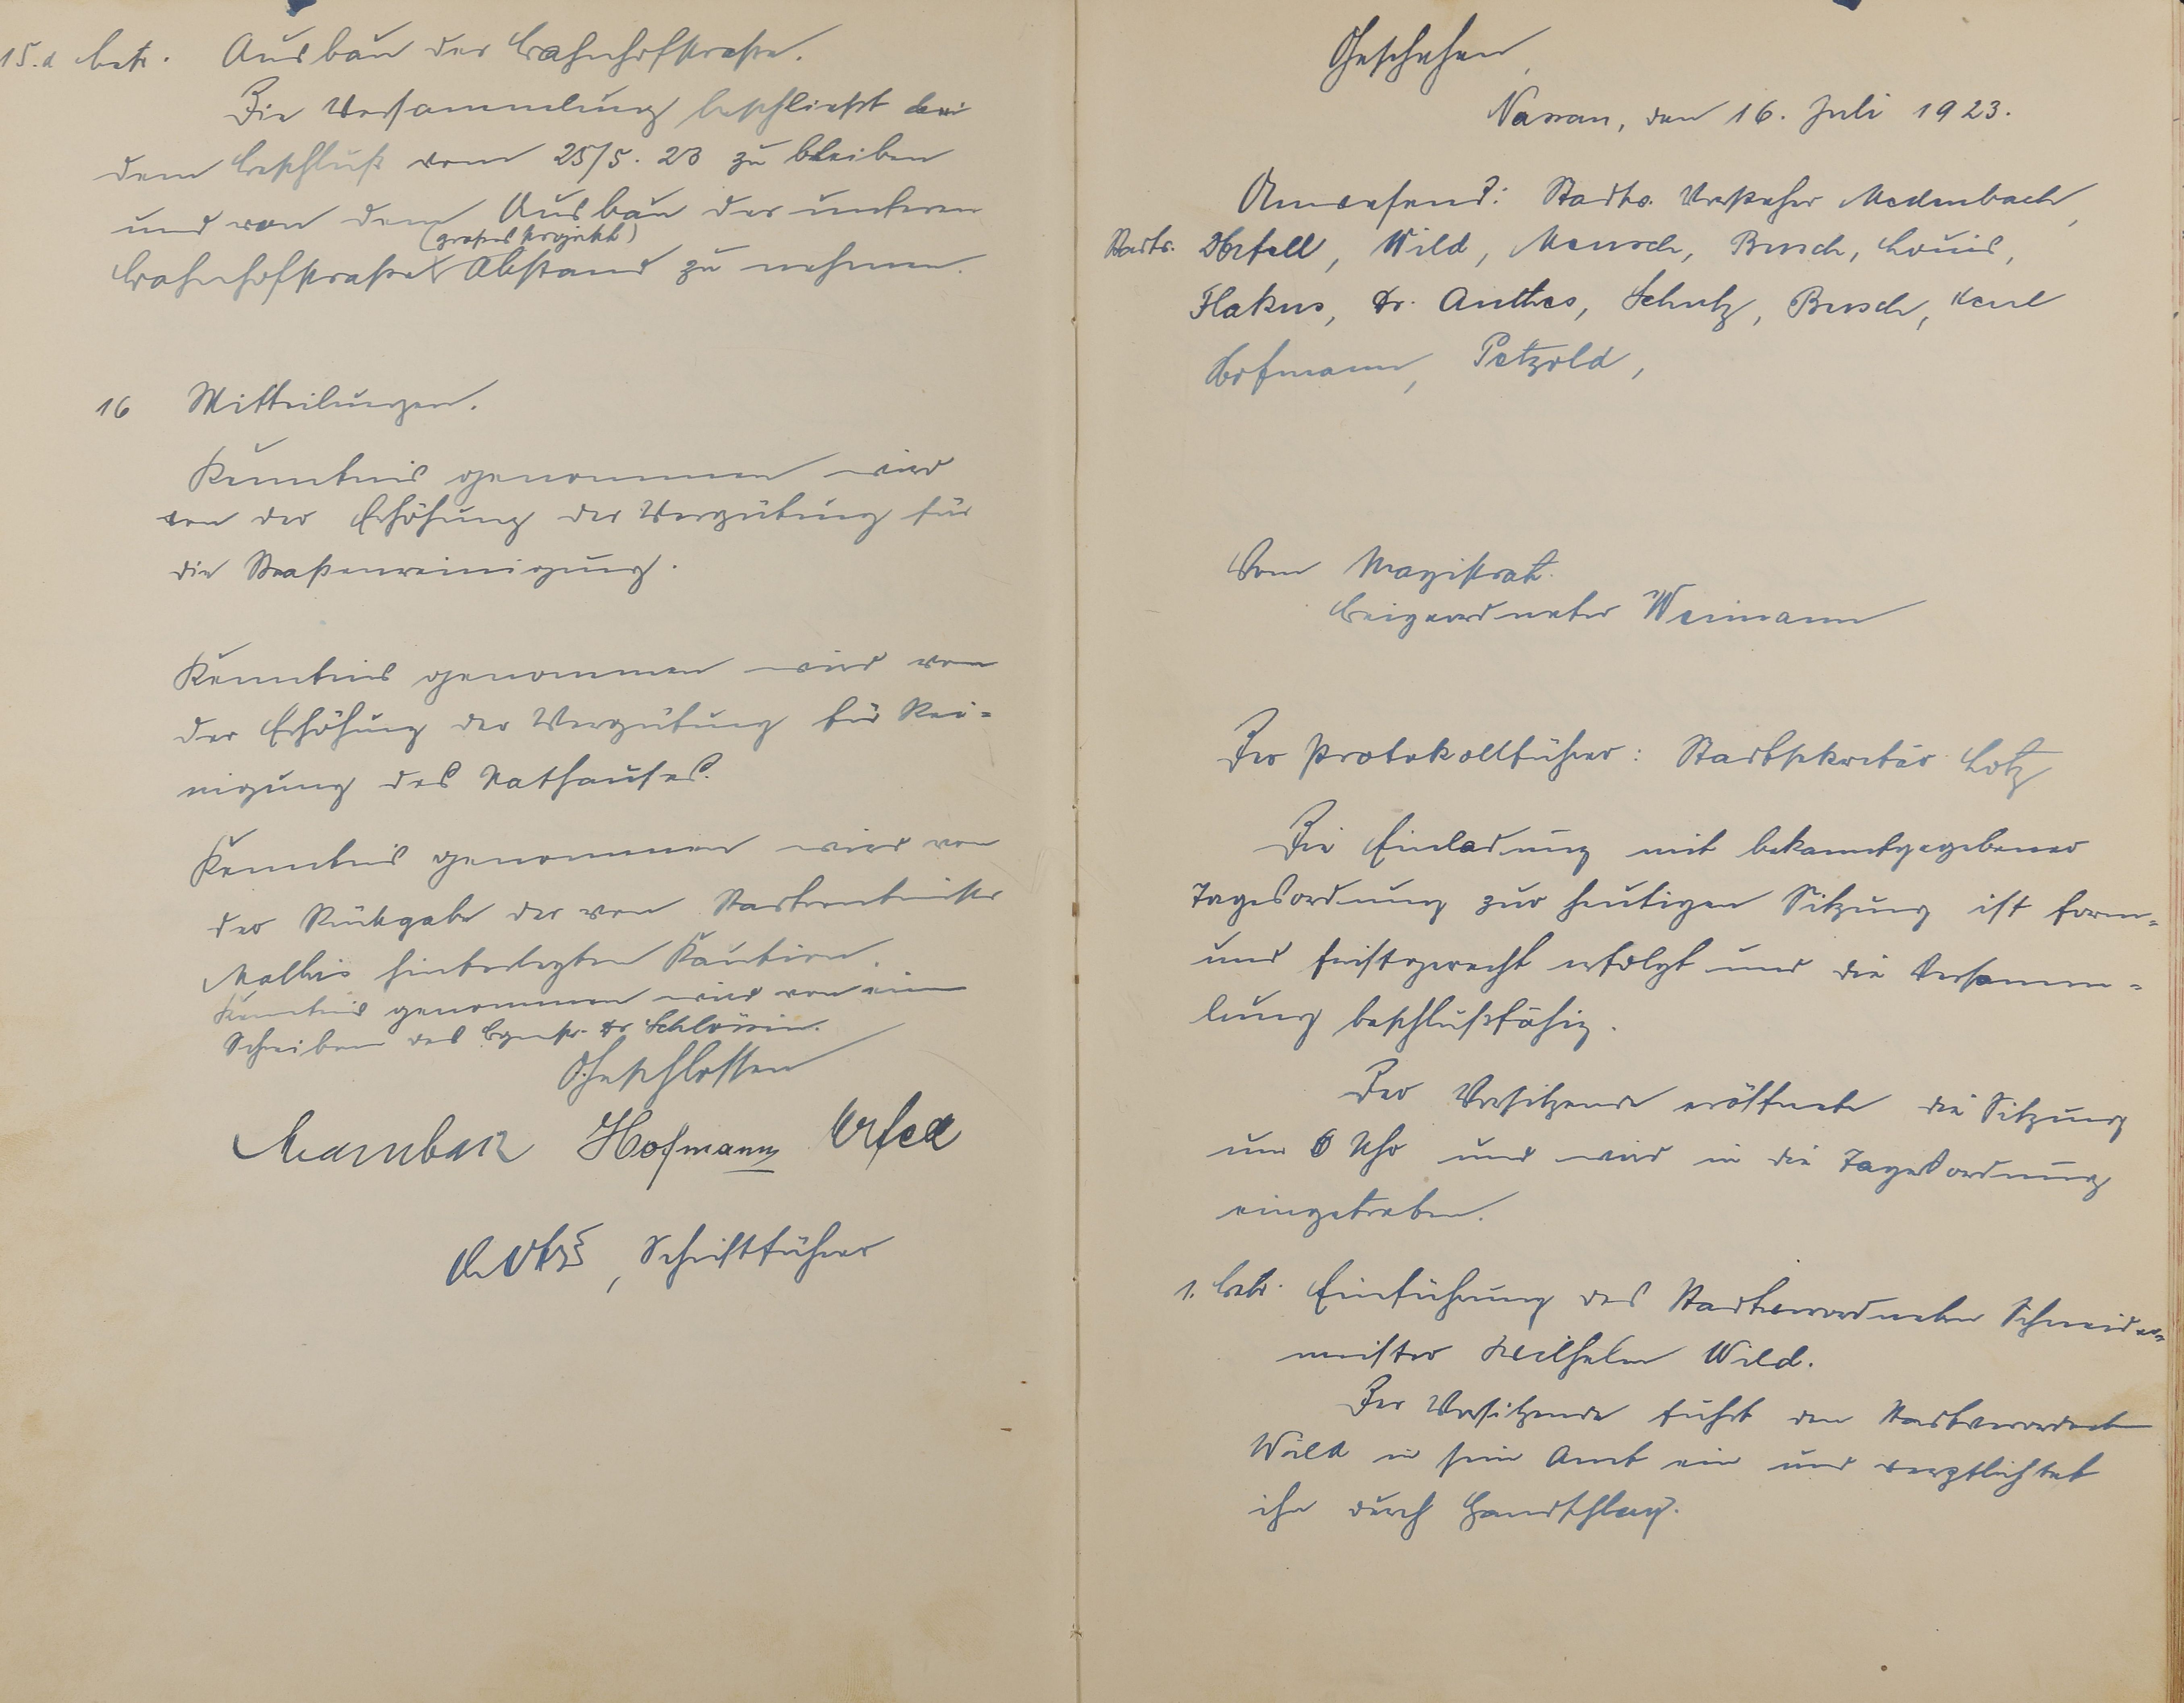 15.d betr. Ausbau der Bahnhofstraße.
Die Versammlung beschließt bei
dem Beschluß vom 25/5. 23 zu bleiben
und von dem Ausbau der unteren
(großes Projekt)
Bahnhofstraße Abstand zu nehmen.
16 Mitteilungen.
Kenntnis genommen wird
von der Erhöhung der Vergütung für
die Straßenreinigung.
Kenntnis genommen wird von
der Erhöhung der Vergütung für Rei=
nigung des Rathauses.
Kenntnis genommen wird von
der Rückgabe der von Stadtrentmeister
hinterlegten Kaution.
Kenntnis genommen wird von einem
Schreiben des Dr
Geschlossen
Medenbach Hofmann
Lotz, Schriftführer
Geschehen,
Nassau, den 16. Juli 1923.
Anwesend: Stadtv. Vorsteher Medenbach,
Stadtv. Wild, Mensch, Busch, Louis,
Flakus, Dr. Anthes, Schulz, Busch, Karl
Hofmann, Petzold,
Vom Magistrat.
Beigeordneter Weimann
Der Protokollführer: Stadtsekretär Lotz
Die Einladung mit bekanntgegebener
Tagesordnung zur heutigen Sitzung ist form=
und fristgerecht erfolgt und die Versamm=
lung beschlußfähig.
Der Vorsitzende eröffnete die Sitzung
um 6 Uhr und wird in die Tagesordnung
eingetreten.
1. betr. Einführung des Stadtverordneten Schneider=
meister Wilhelm Wild.
Der Vorsitzende führt den Stadtverordneten
Wild in sein Amt ein und verpflichtet
ihn durch Handschlag.